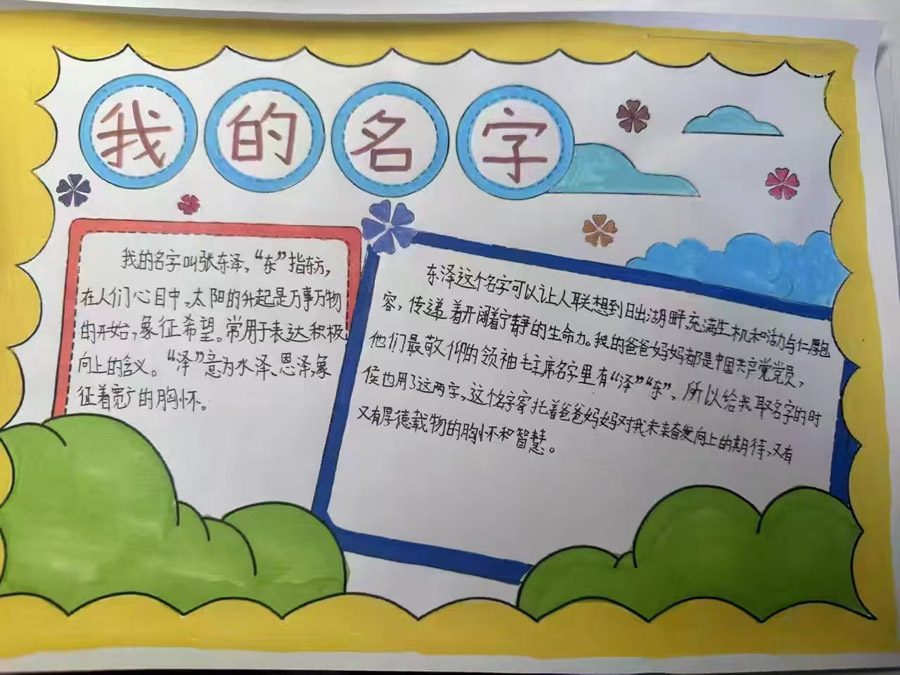 我的名字
我的名字叫张东泽,“东”指东方,
在人们心目中,太阳的升起是万事万物
的开始,象征希望。常用于表达积极
向上的含义。“泽”意为水泽、恩泽,象
征着宽广的胸怀。
东泽这个名字可以让人联想到日出湖畔,充满生机和活力与仁厚包
容,传递着开阔宁静的生命力。我的爸爸妈妈都是中国共产党党员,
他们最敬仰的领袖毛主席名字里有“泽”“东”,所以给我取名字的时
侯也用了这两字,这个名字寄托着爸爸妈妈对我未来奋发向上的期待,又有
又有厚德载物的胸怀和智慧。